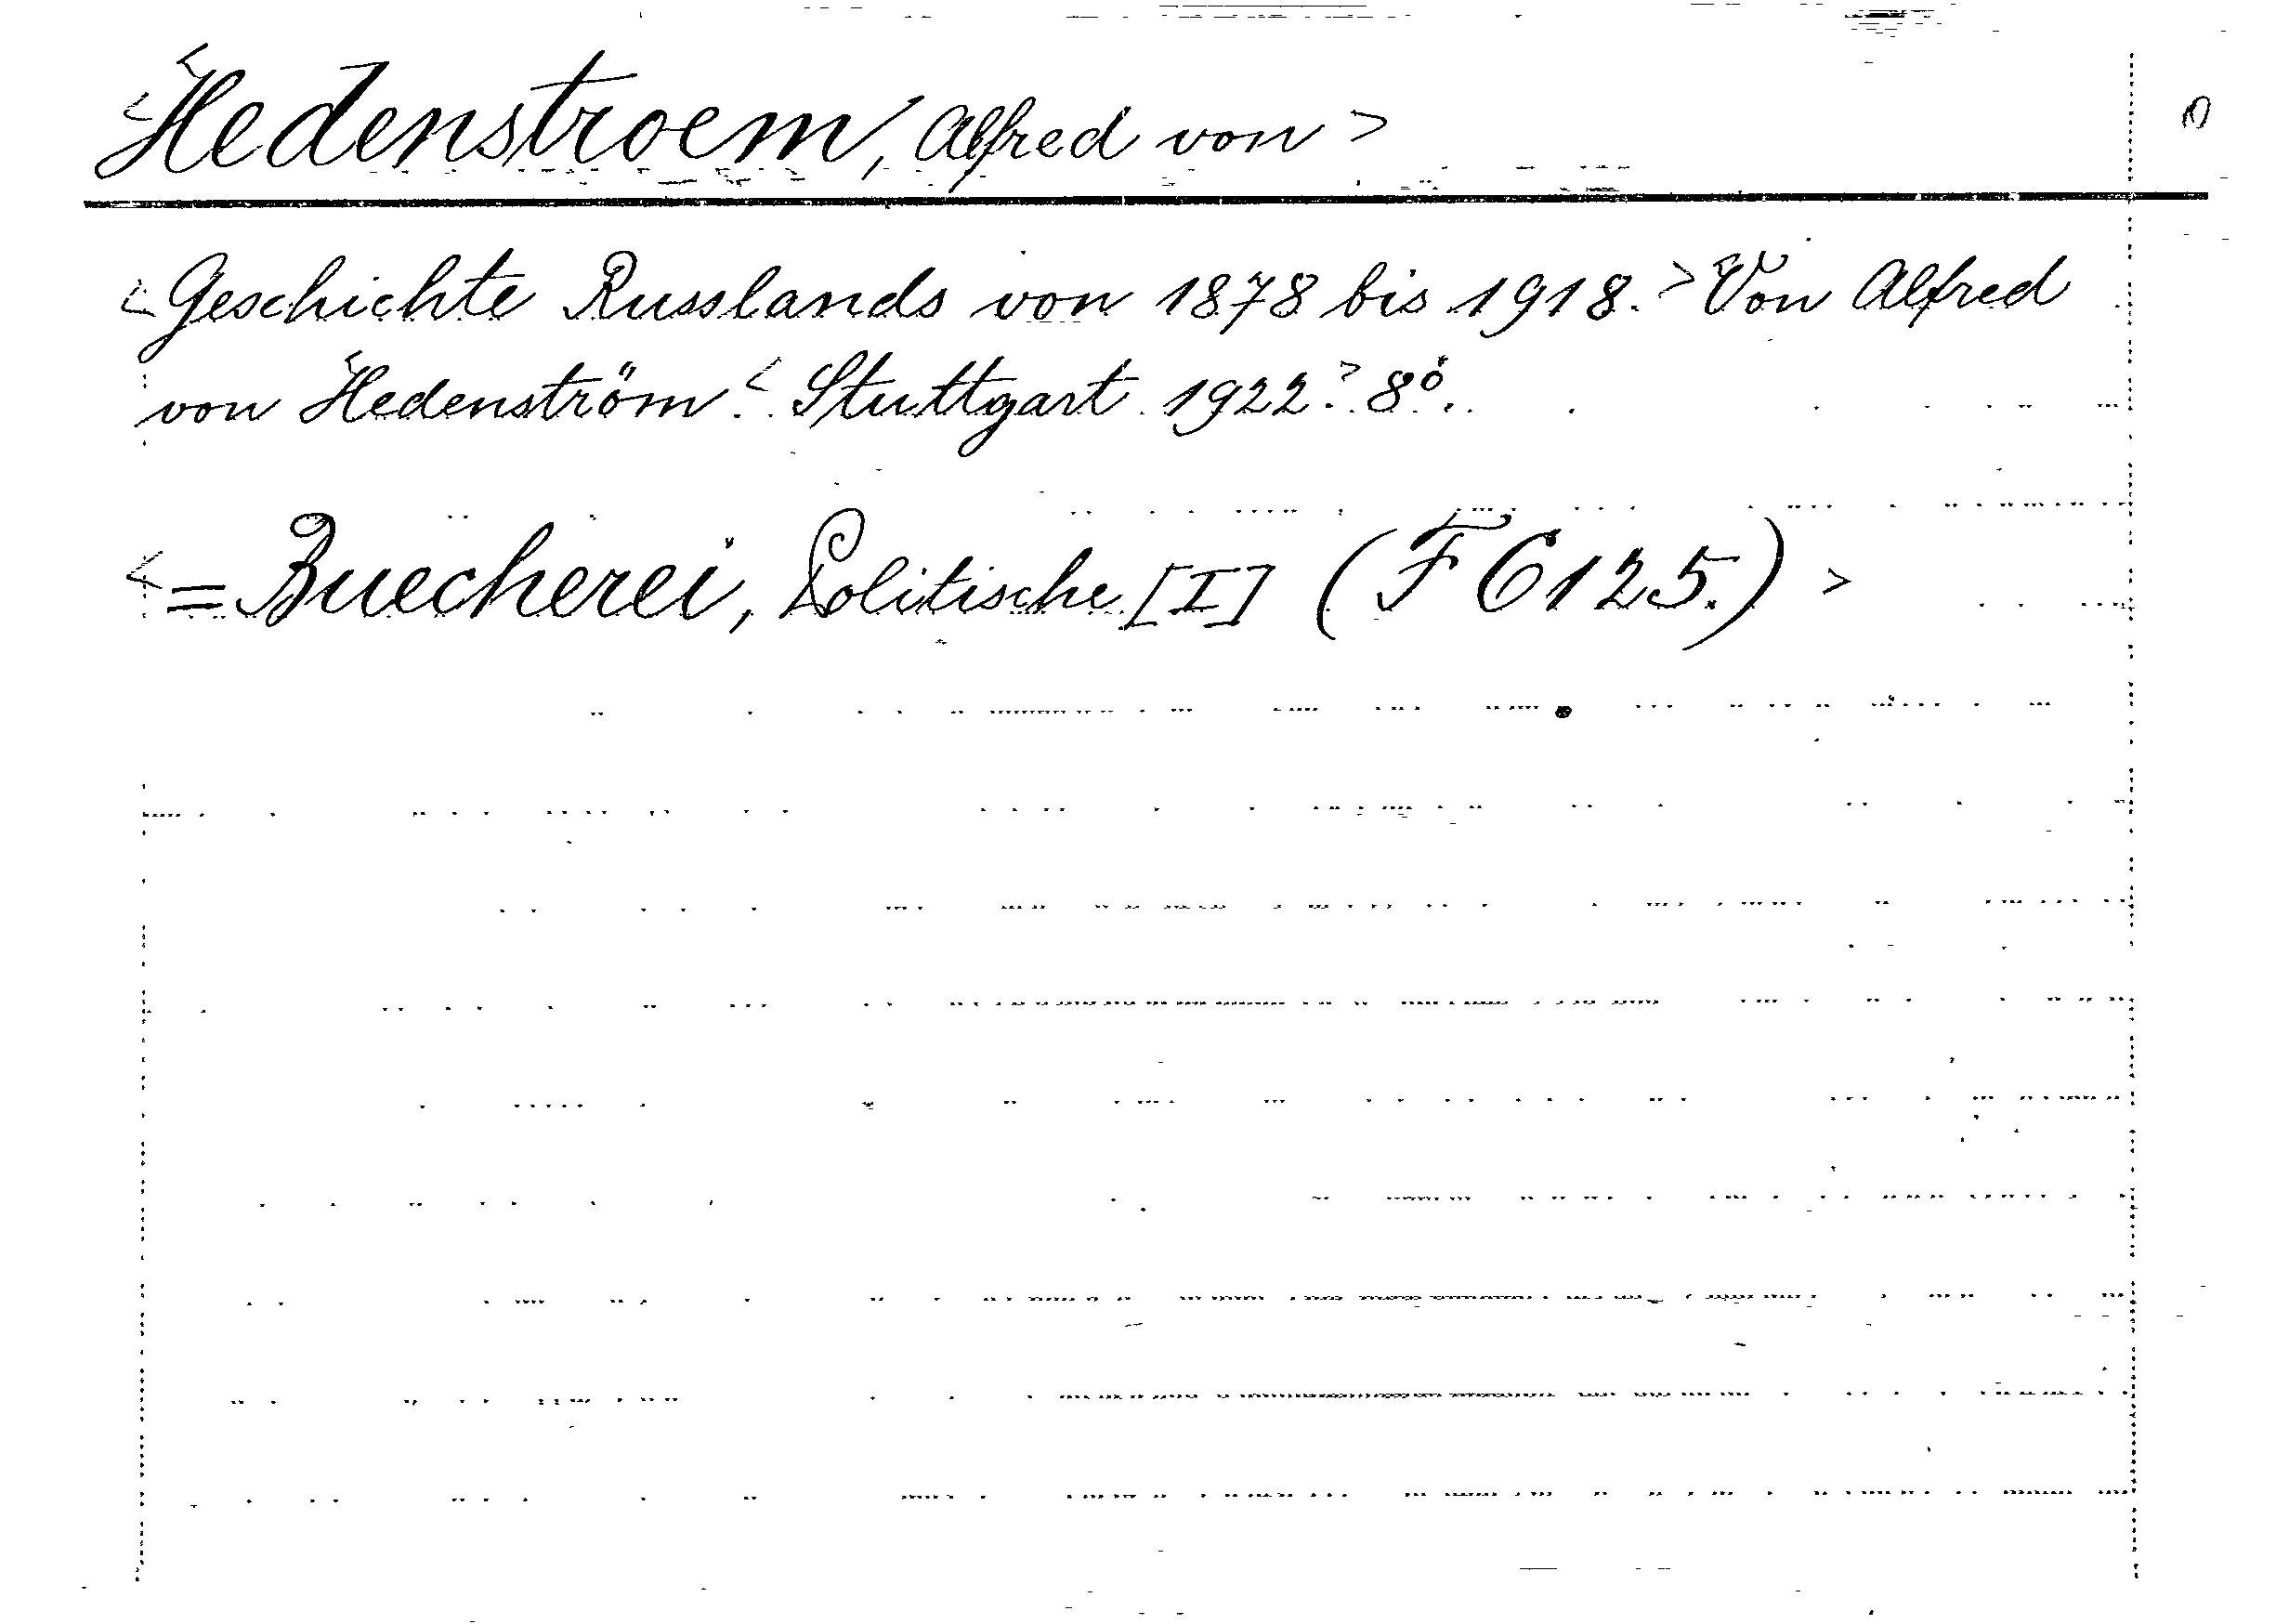 <Hedenstroem, Alfred von>
<Geschichte Russlands von 1878 bis 1918.> Von Alfred
von Hedenström. <Stuttgart 1922.> 8°.
<= Buecherei, Politische [I] (F 6125.)>